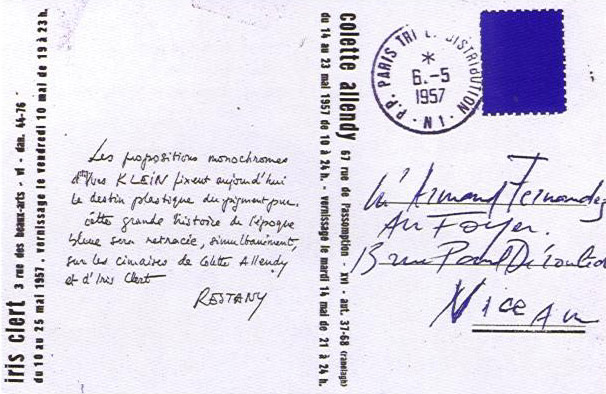 iris clert 3 rue des beaux-arts - vi - dan. 44-76
du 10 au 25 mai 1957 - vernissage le vendredi 10 mai de 19 à 23 h.
Les propositions monochromes
d'Yves KLEIN fixent aujourd'hui
le destin plastique du pigment pur.
Cette grande histoire de l'époque
bleue sera retracée, simultanément,
sur les cimaises de Colette Allendy
et d'Iris Clert
RESTANY
colette allendy 67 rue de l'assomption - xvi - aut. 37-68 (ranelagh)
du 14 au 23 mai 1957 de 10 à 24 h. - vernissage le mardi 14 mai de 21 à 24 h.
P.P. PARIS TRI ET DISTRIBUTION N1
*
6.-5
1957
Armand Fernandez
Au Foyer.
13 rue Paul Déroulède
NICE AM